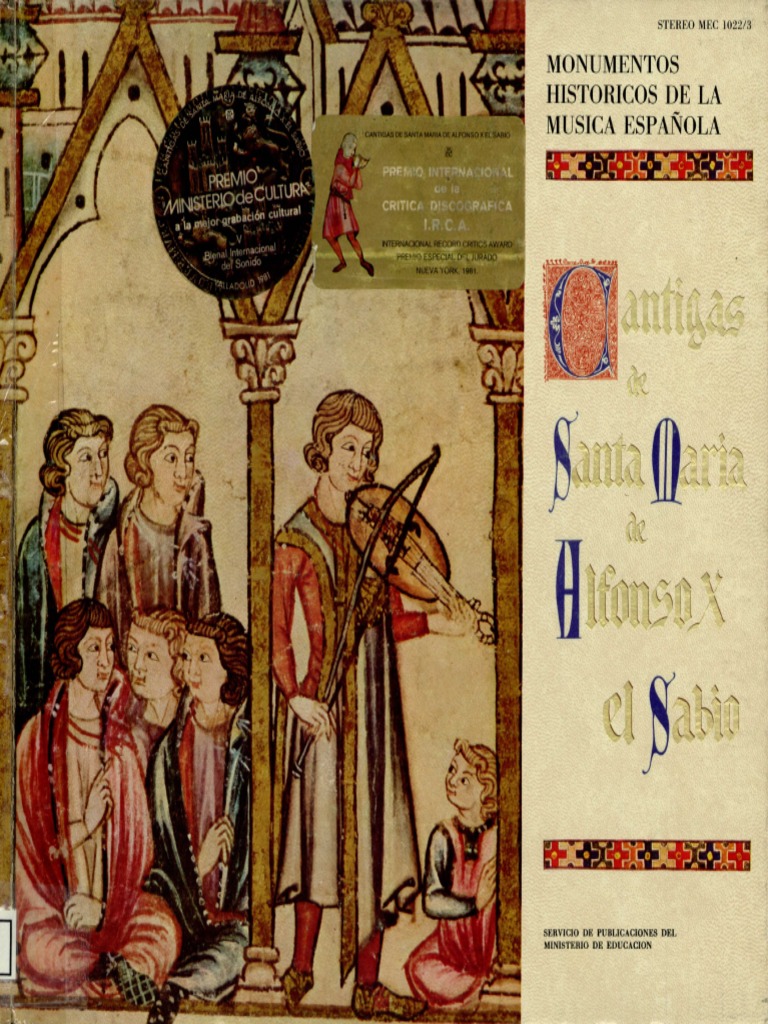 STEREO MEC 1022/3
MONUMENTOS
HISTORICOS DE LA
MUSICA ESPAÑOLA
Cantigas
de
Santa Maria
de
Alfonso X
el Sabio
SERVICIO DE PUBLICACIONES DEL
MINISTERIO DE EDUCACION
CANTIGAS DE SANTA MARIA DE ALFONSO X EL SABIO
PREMIO
MINISTERIO de CULTURA
a la mejor grabación cultural
V
Bienal Internacional
del Sonido
VALLADOLID 1981
CANTIGAS DE SANTA MARIA DE ALFONSO X EL SABIO
PREMIO INTERNACIONAL
de la
CRITICA DISCOGRAFICA
I.R.C.A.
INTERNATIONAL RECORD CRITICS AWARD
PREMIO ESPECIAL DEL JURADO
NUEVA YORK, 1981